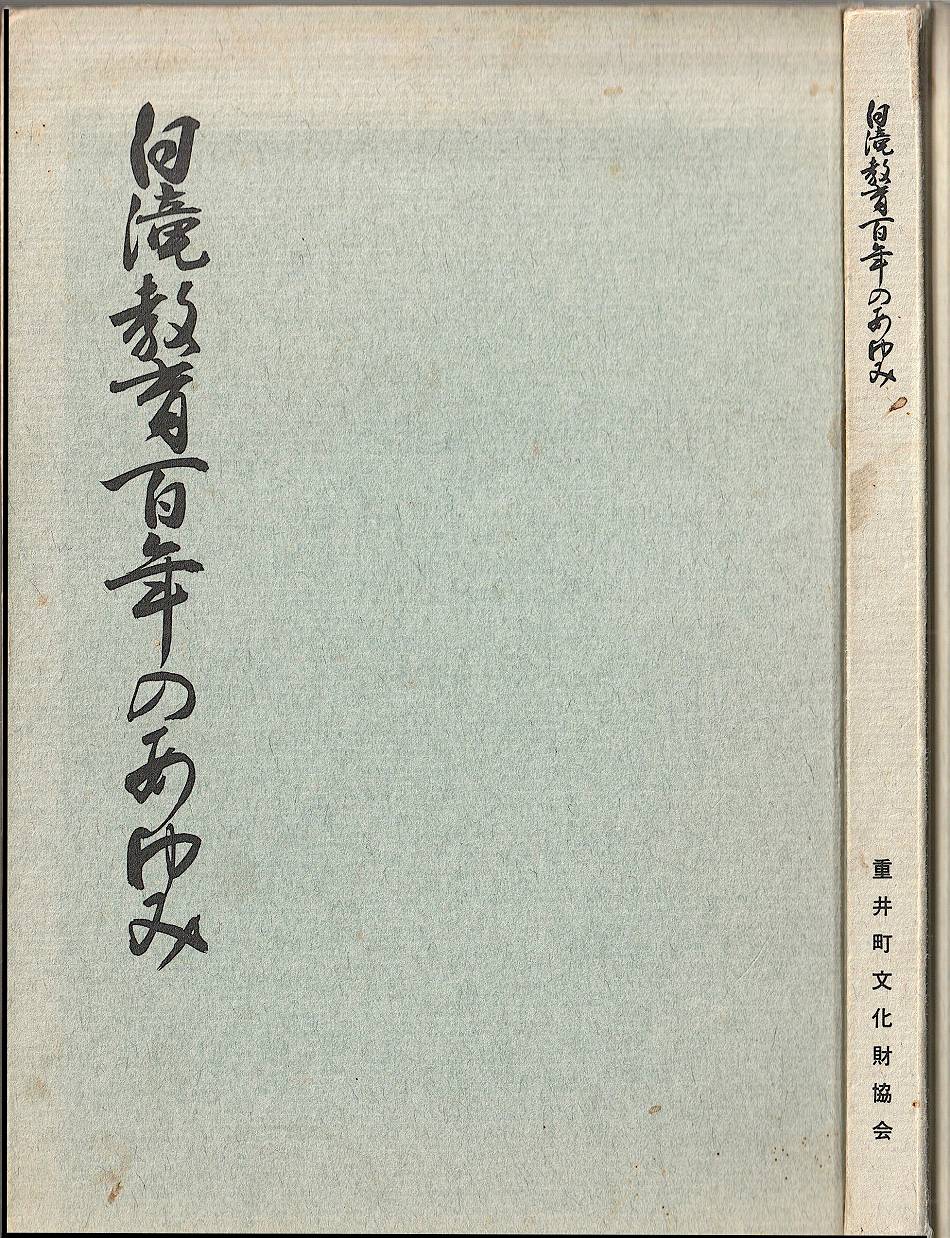 白滝教育百年のあゆみ
白滝教育百年のあゆみ
重井町文化財協会